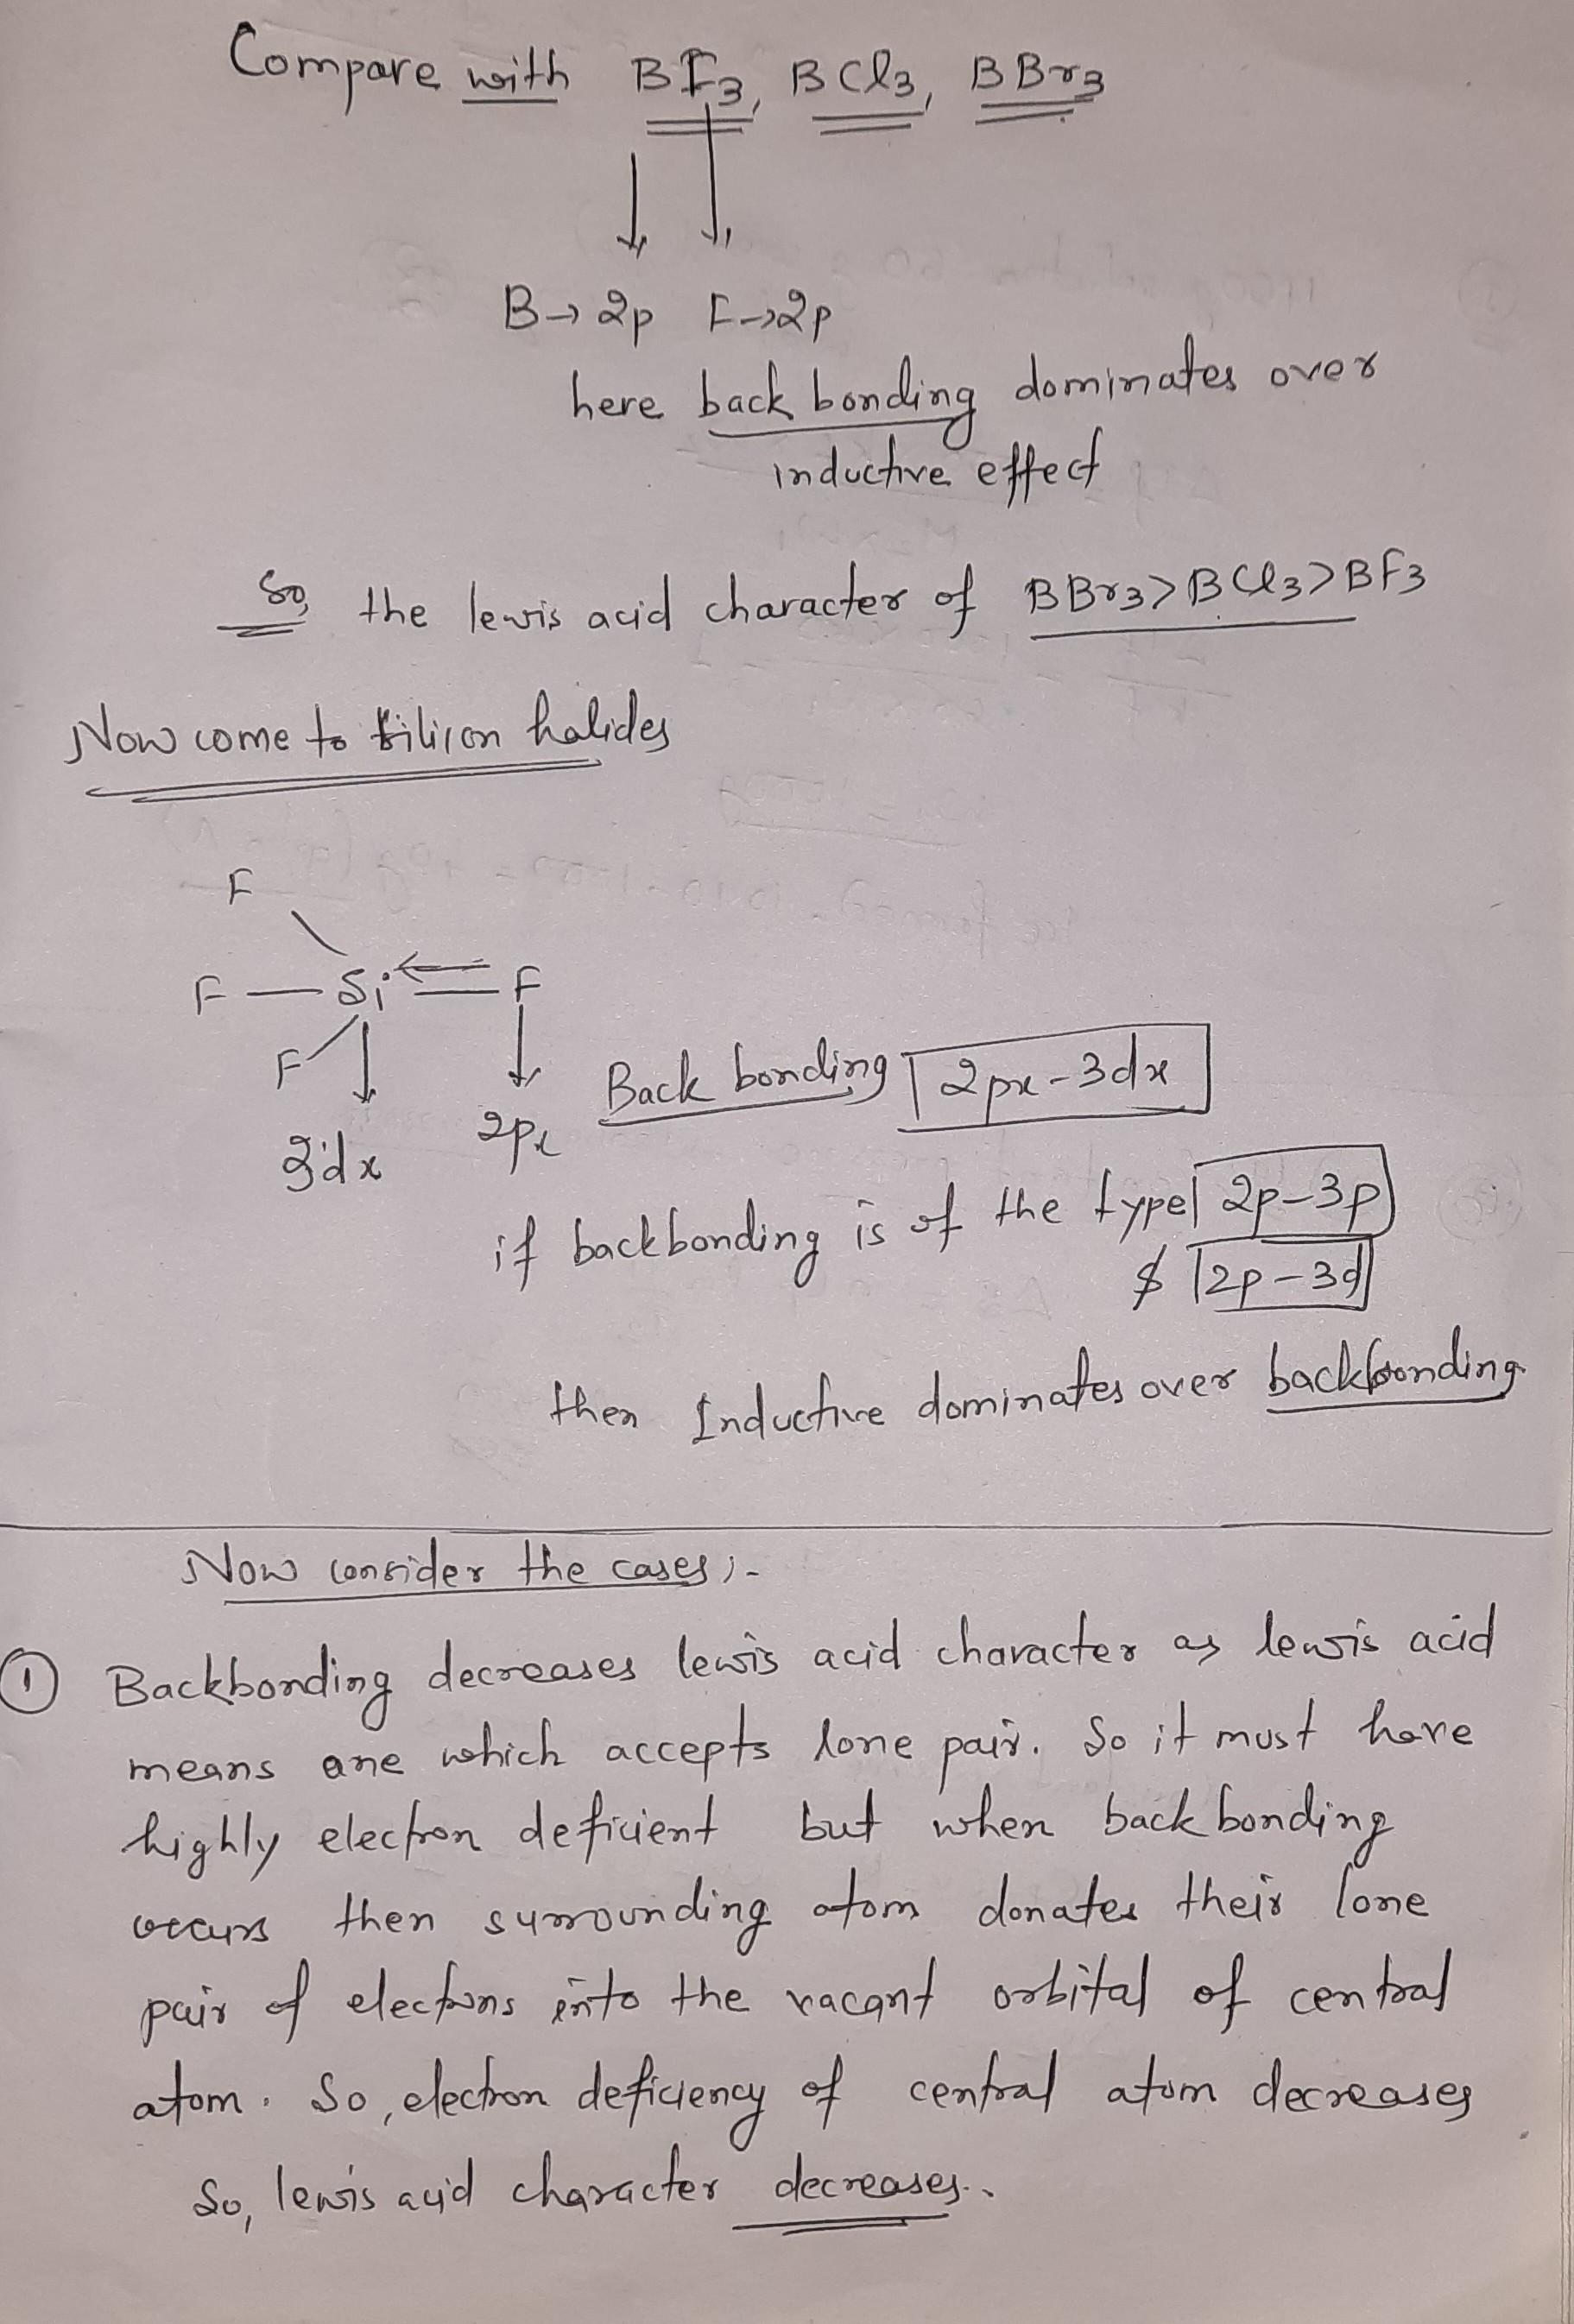 Compare with BF3, BCl3, BBr3
B→2p F→2p
here back bonding dominates over
inductive effect
So, the lewis acid character of BBr3>BCl3>BF3
Now come to silicon halides
F
F—Si=F
F
Back bonding 2px-3dx
3dx 2px
if backbonding is of the type 2p-3p
& 2p-3d
then Inductive dominates over backbonding
Now consider the cases:-
① Backbonding decreases lewis acid character as lewis acid
means one which accepts lone pair. So it must have
highly electron deficient but when back bonding
occurs then surrounding atom donates their lone
pair of electrons into the vacant orbital of central
atom. So, electron deficiency of central atom decreases
So, lewis acid character decreases..